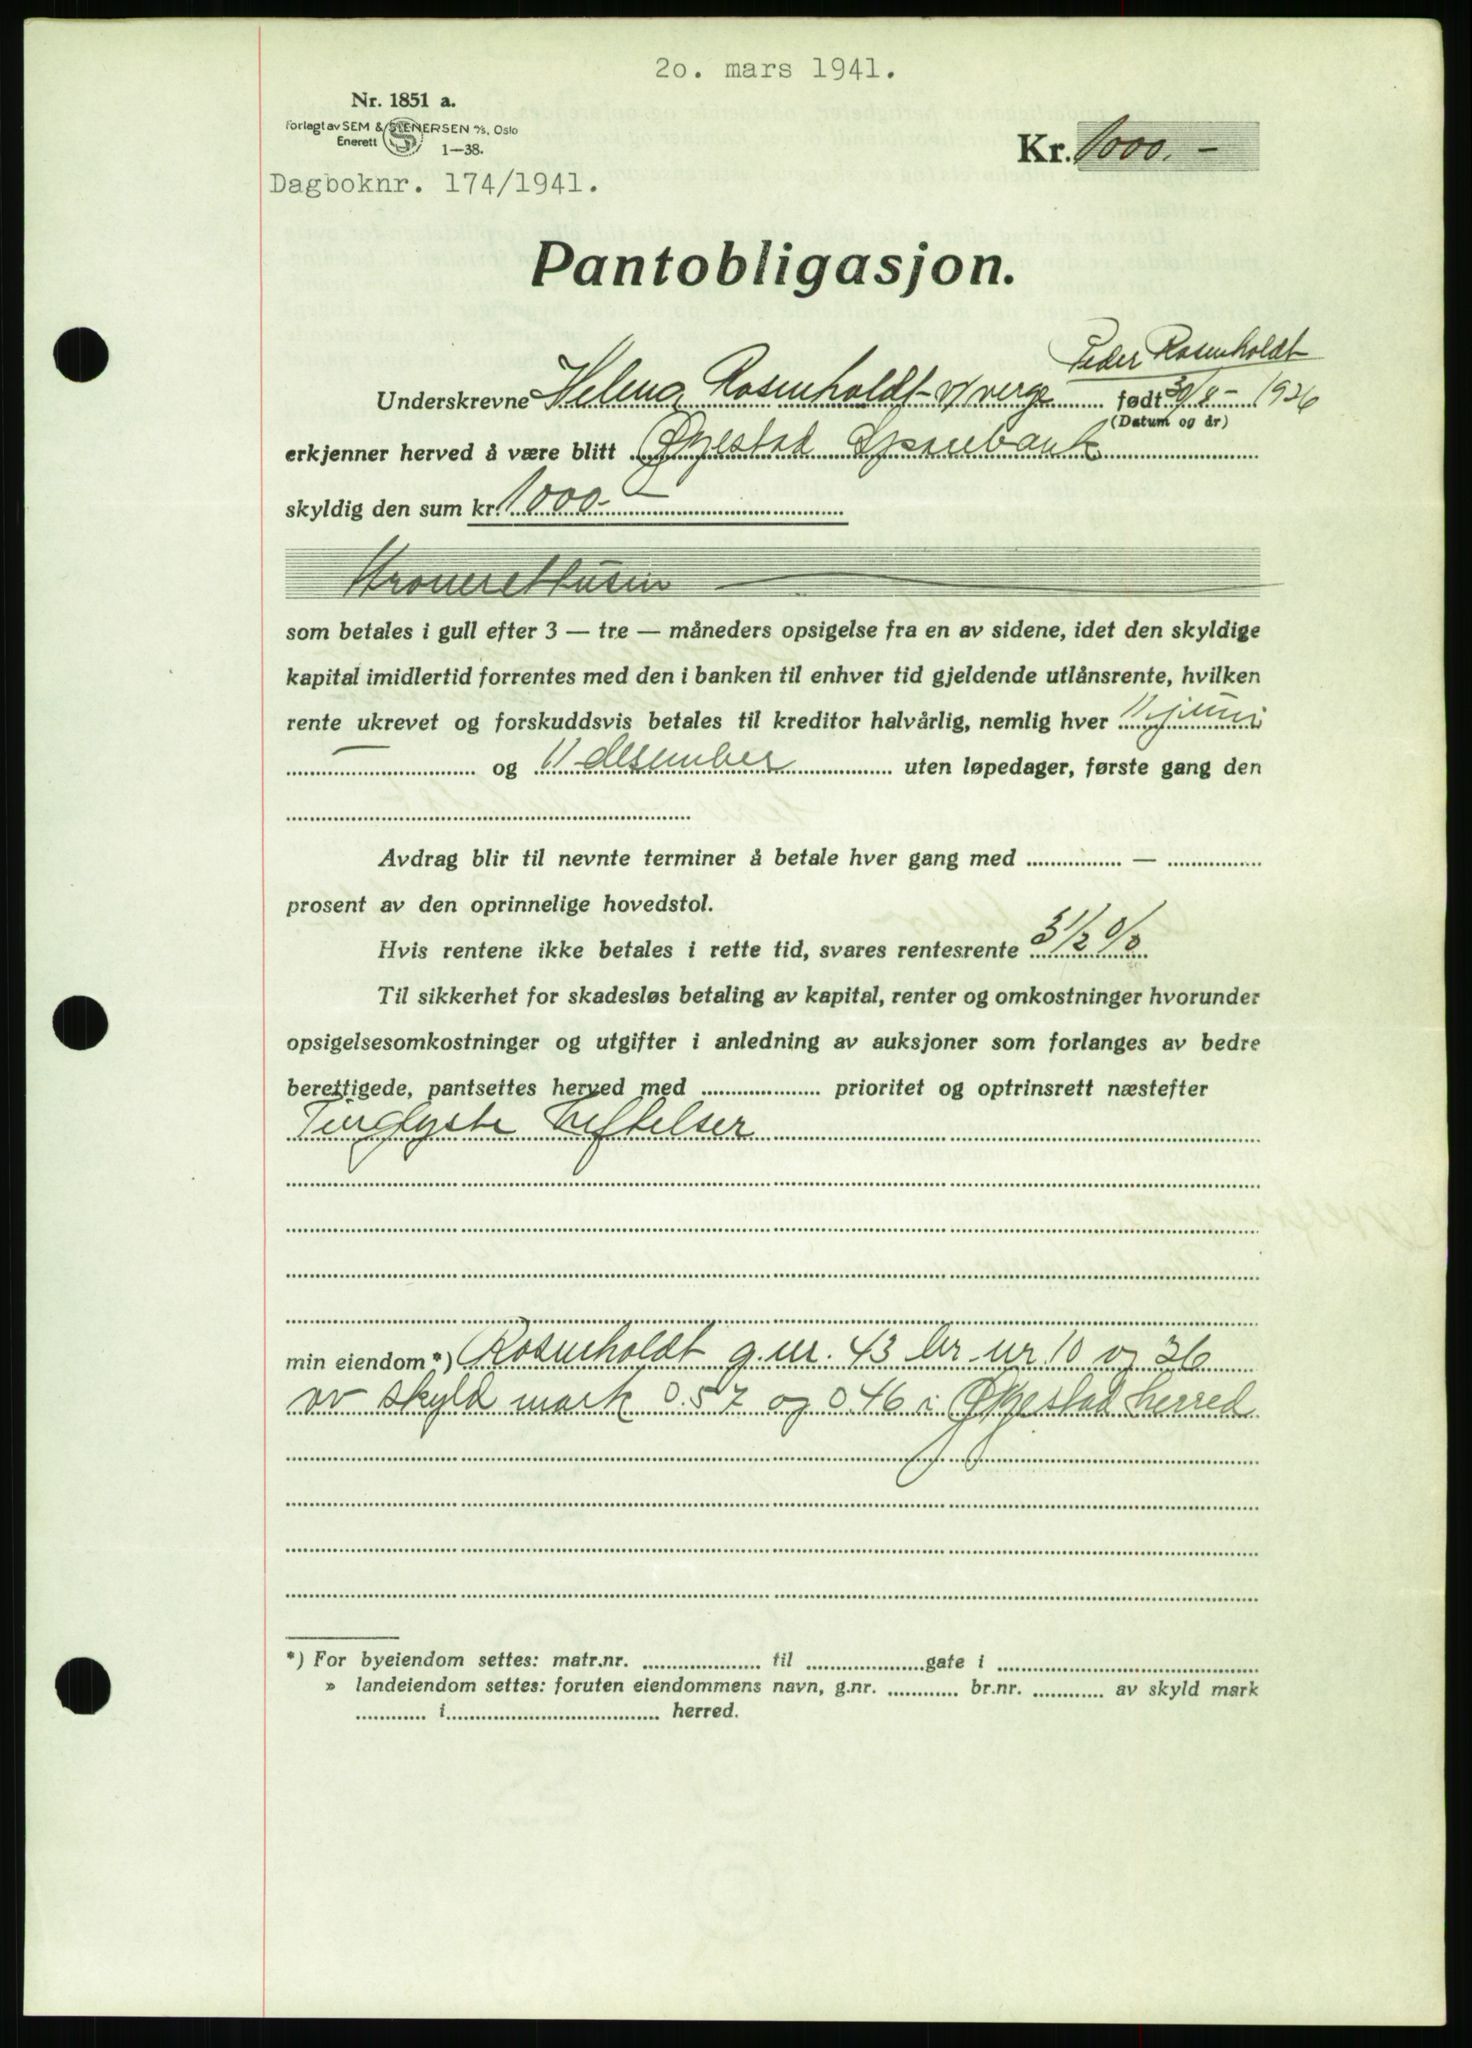 20. mars 1941.
Nr. 1851 a.
Forlagt av SEM & STENERSEN A/S, Oslo
Enerett
1—38.
Kr. 1000.-
Dagboknr. 174/1941.
Pantobligasjon.
Peder Rosenholdt
Underskrevne Helena Rosenholdt v/verge født 30/8 - 1926
(Datum og år)
erkjenner herved å være blitt Øyestad Sparebank
skyldig den sum kr. 1000.-
Kroneretttusen
som betales i gull efter 3 — tre — måneders opsigelse fra en av sidene, idet den skyldige
kapital imidlertid forrentes med den i banken til enhver tid gjeldende utlånsrente, hvilken
rente ukrevet og forskuddsvis betales til kreditor halvårlig, nemlig hver 11 juni
— og 11 desember uten løpedager, første gang den
Avdrag blir til nevnte terminer å betale hver gang med — 
prosent av den oprinnelige hovedstol.
Hvis rentene ikke betales i rette tid, svares rentesrente 5 1/2 0/0
Til sikkerhet for skadesløs betaling av kapital, renter og omkostninger hvorunder
opsigelsesomkostninger og utgifter i anledning av auksjoner som forlanges av bedre
berettigede, pantsettes herved med prioritet og optrinsrett næstefter
Tinglyste heftelser
min eiendom *) Rosenholdt g.nr. 43 br nr 10 og 36
av skyld mark 0.57 og 0.46 i Øyestad herred
*) For byeiendom settes: matr.nr. til gate i
» landeiendom settes: foruten eiendommens navn, g.nr. br.nr. av skyld mark
i herred.